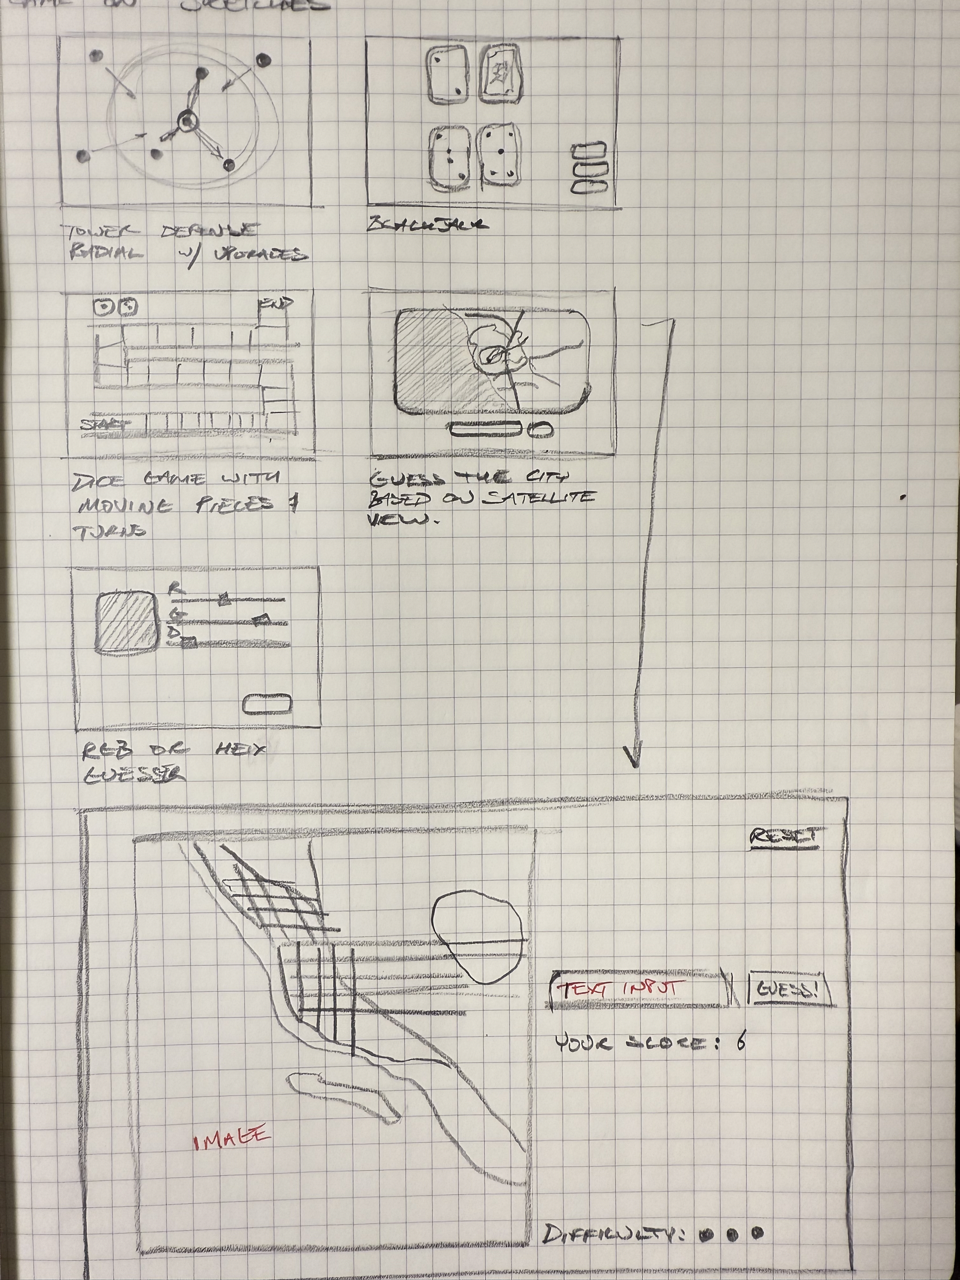 GAME ON SKETCHES
TOWER DEFENSE
RADIAL W/ UPGRADES
BLACKJACK
END
START
DICE GAME WITH
MOVING PIECES &
TURNS
GUESS THE CITY
BASED ON SATELLITE
VIEW.
R
G
B
RGB OR HEX
GUESSER
RESET
TEXT INPUT
GUESS!
YOUR SCORE: 6
IMAGE
DIFFICULTY: